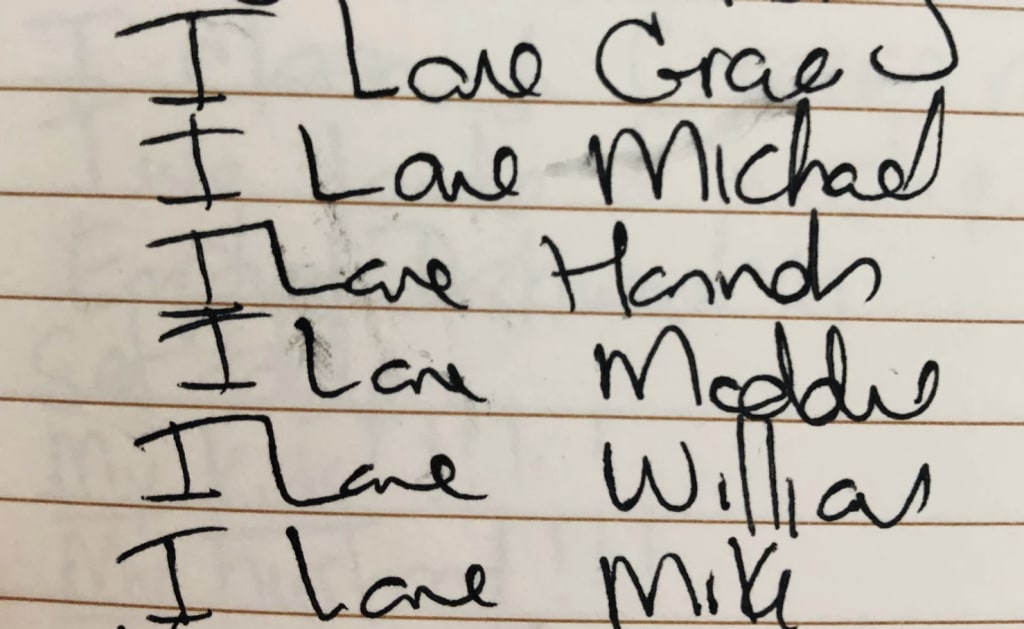 I Love Grace
I Love Michael
I Love Hannah
I Love Maddie
I Love William
I Love Mike